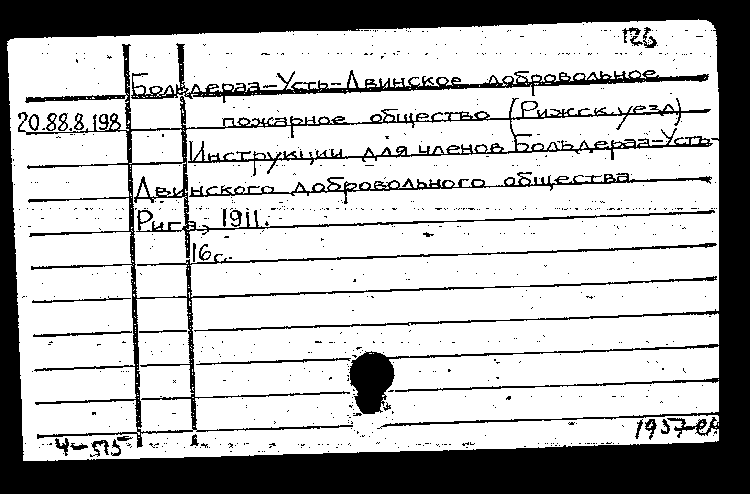 126
Больдераа-Усть-Двинское добровольное
20.88.8.198 пожарное общество (Рижск.уезд)
Инструкции для членов Больдераа-Усть-
Двинского добровольного общества.
Рига, 1911.
16с.
4-515